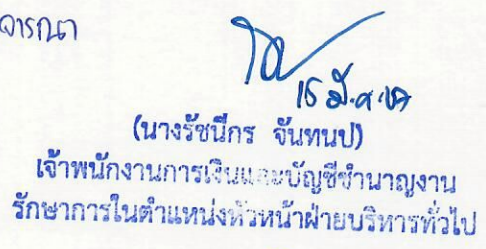 จารณา
15 มี.ค. 67
(นางรัชนีกร จันทนป)
เจ้าพนักงานการเงินและบัญชีชำนาญงาน
รักษาการในตำแหน่งหัวหน้าฝ่ายบริหารทั่วไป